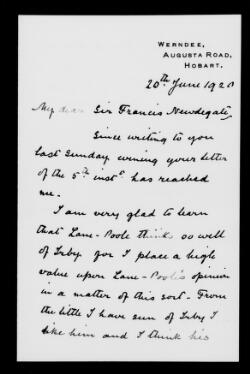 WERNDEE,
AUGUSTA ROAD,
HOBART.
20th June 1920
My dear Sir Francis Newdegate,
Since writing to you
last Sunday evening your letter
of the 5th inst. has reached
me.
I am very glad to learn
that Lane-Poole thinks so well
of Irby for I place a high
value upon Lane-Poole's opinion
in a matter of this sort - From
the little I have seen of Irby I
like him and I think his